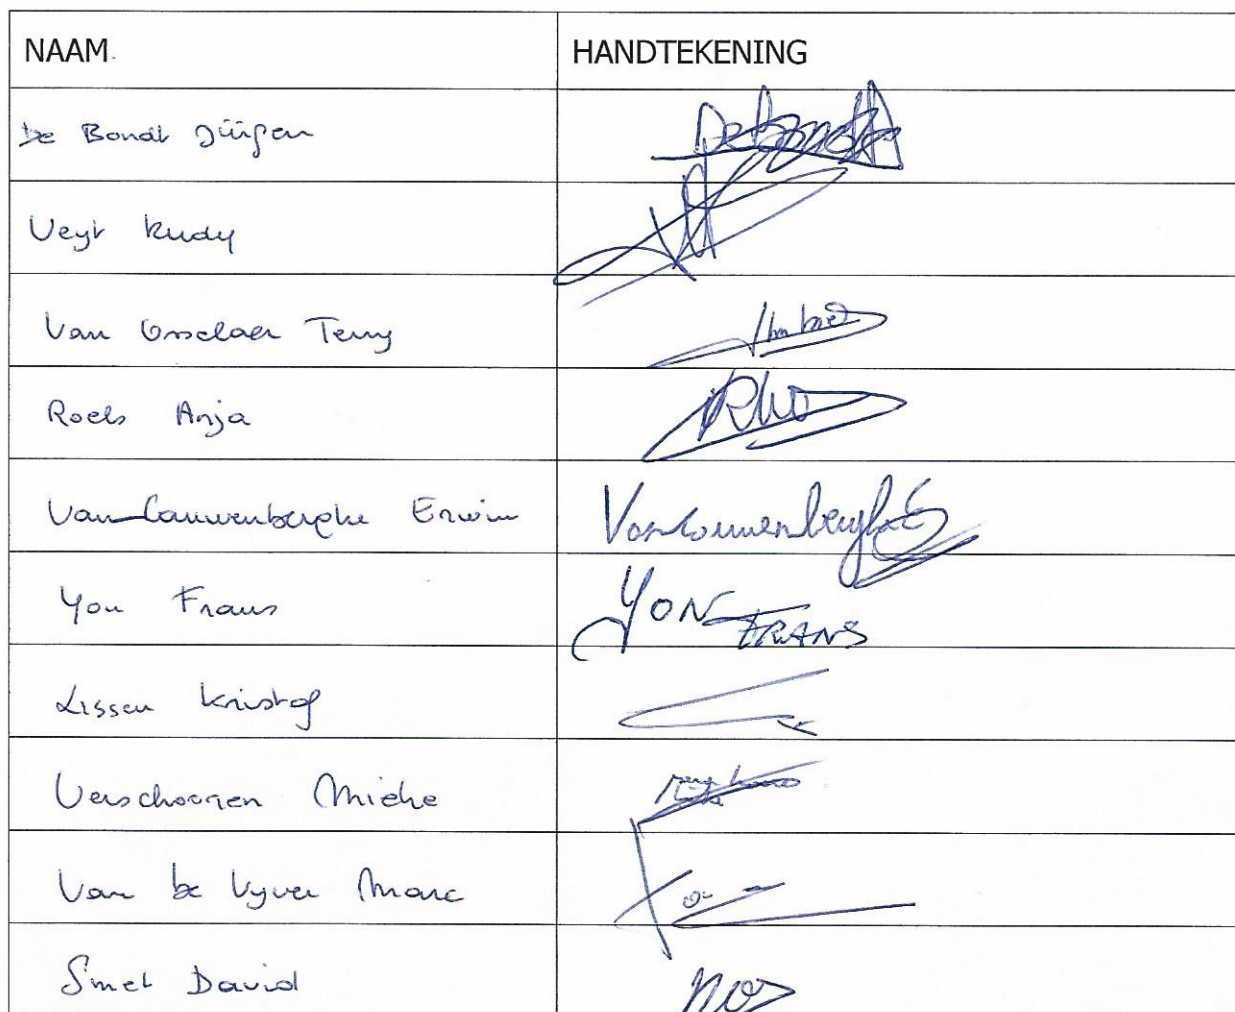 NAAM HANDTEKENING
De Bondt Jürgen
Veyt Rudy
Van Osselaer Terry
Roels Anja
Van Cauwenberghe Erwin
Yon Frans YON FRANS
Lissen Kristof
Verschooren Mieke
Van De Vyver Marc
Smet David